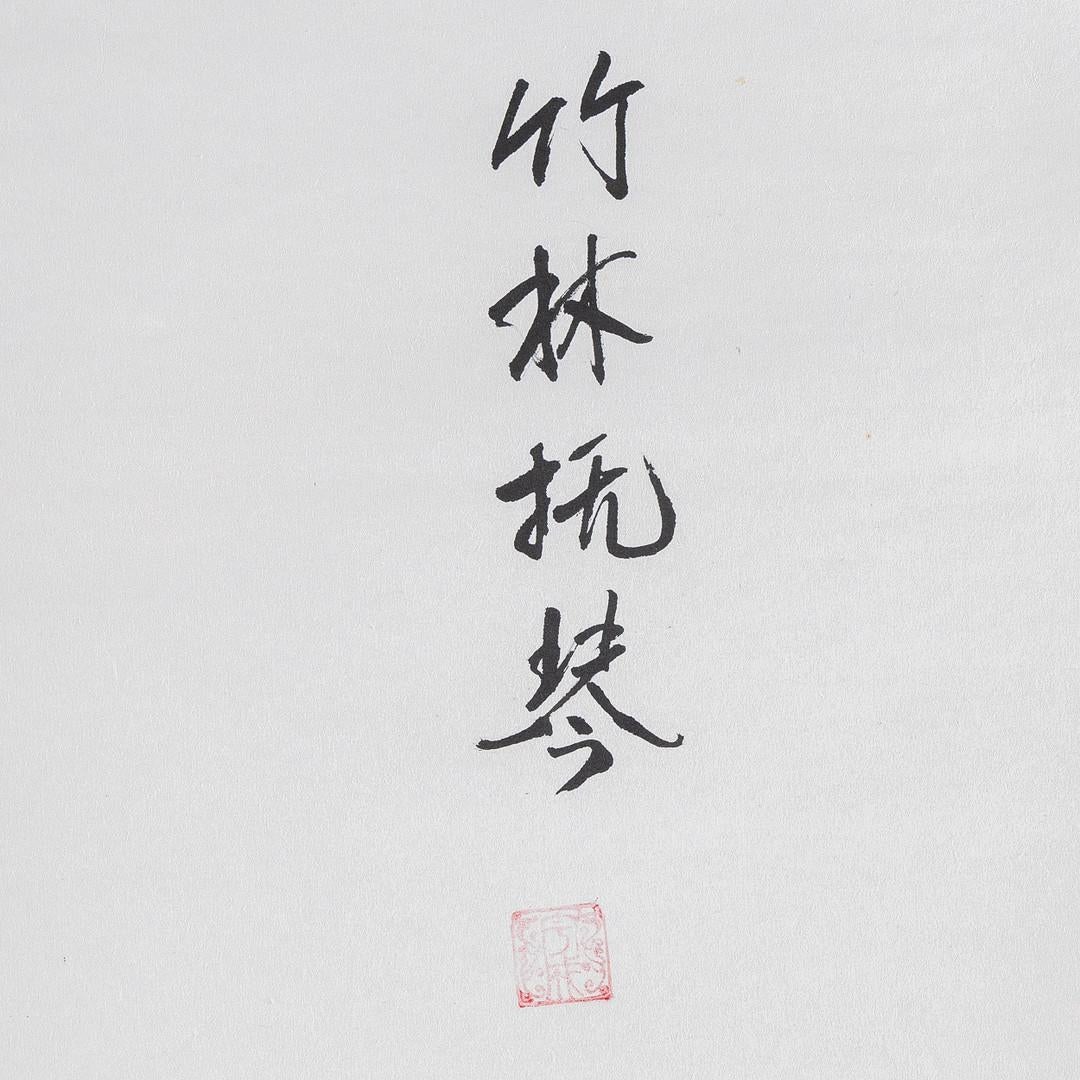 竹林抚琴